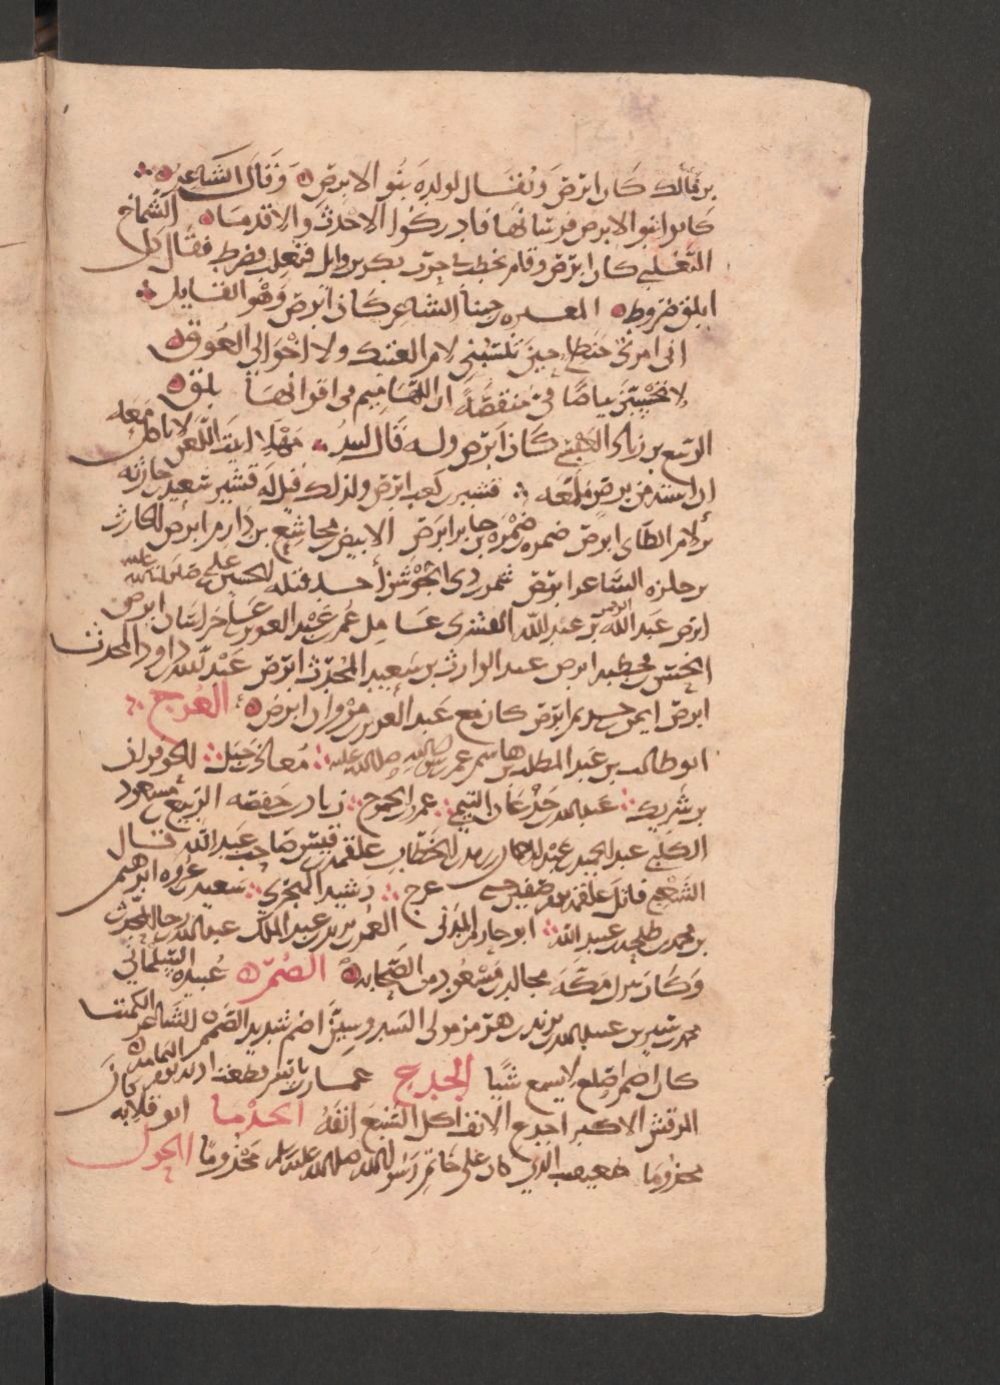 بن مالك كان ابرص ويقال لولده بنو الابرص وقال الشاعر
كان بنو الابرص فرسانها فادركوا الاحدث والاقدما الشماخ
التغلبي كان ابرص وقام يخطب في حرب بكر بن وايل فضرط فقال
ابلق ضروط رجينا الشاعر كان ابرص وهو القايل
انى امرؤ حنظلي حين تنسبني لام العتيك ولا اخوالي العوق
لا تحسبن بياضا في منقصة ان اللهاميم في اقرانها بلق
الربيع بن زياد العبسي كان ابرص وله قال لبيد مهلا ابيت اللعن لا تاكل معه
ان استه من برص ملمعه قشير بن كعب ابرص ولذلك قيل له قشير سعيد بن حارثة
بن لام الطائ ابرص ضمره بن ضمره بن جابر ابرص الابيض بن مجاشع بن دارم ابرص الحارث
بن حلزه الشاعر ابرص شمر بن ذي الجوشن احد قتله الحسين بن علي
ابرص عبد الرحمن بن عبد الله القشيري عامل عمر بن عبد العزيز على خراسان ابرص
ابرص عبد الوارث بن سعيد المحدث ابرص عبد الله بن داود المحدث
ابرص ايمن بن خريم ابرص كان مع عبد العزيز بن مروان ابرص العرج
ابو طالب بن عبد المطلب بن هاشم عم رسول الله صلى الله عليه معاذ بن جبل الحوفزان
بن شريك عبد الله بن جدعان التيمي عمرو بن الجموح زياد بن حفصه الربيع بن مسعود
الكلبي عبد الحميد بن عبد الرحمن بن زيد بن الخطاب علقمة بن قيس صاحب عبد الله قال
الشعبي عرج رشيد الهجري سعيد بن عروه ابرهيم
بن محمد بن طلحه بن عبيد الله ابو حازم المدني الغمر بن يزيد بن عبد الملك عبد الله بن رجا المحدث
وكان ينزل مكة مجالد بن مسعود من الصحابه الصم عبيده السلماني
محمد بن سيرين عبد الله بن يزيد بن هرمز مولى الدوسيين اصم شديد الصمم الشاعر الكميت
كان اصم اصلع لا يسمع شيا الجدع عمار بن ياسر قطعت اذنه يوم اليمامه كان
المرقش الاكبر اجدع الانف اكل السبع انفه الجذما ابو قلابه
مجذوما معيقيب الذي كان على خاتم رسول الله صلى الله عليه مجذوما الحول